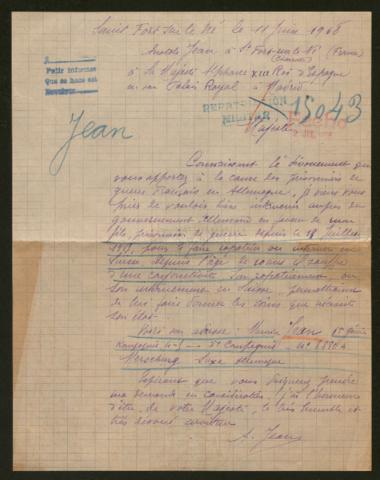 Saint Fort sur le Né le 11 Juin 1918
Jean à St Fort sur le Né (France)
(Charente)
à Sa Majesté Alphonse XIII Roi d'Espagne
en son Palais Royal à Madrid
Pedir informes
Que se hace est
REPATRIACION
MILITAR
15043
Jean
Majesté
Connaissant le dévouement que
vous apportez à la cause des prisonniers de
guerre Français en Allemagne, je viens vous
prier de vouloir bien intervenir auprès du
gouvernement Allemand en faveur de mon
fils, prisonnier de guerre depuis le 18 Juillet
pour le faire rapatrier ou interner en
Suisse
d'une Son rapatriement ou
son internement en Suisse permettraient
de lui faire donner les soins que nécessite
son état.
Voici son adresse: Jean
Merseburg Saxe Allemagne
Espérant que vous daignerez prendre
ma demande en considération, j'ai l'honneur
d'être, de votre Majesté, le très humble et
très dévoué serviteur
A. Jean